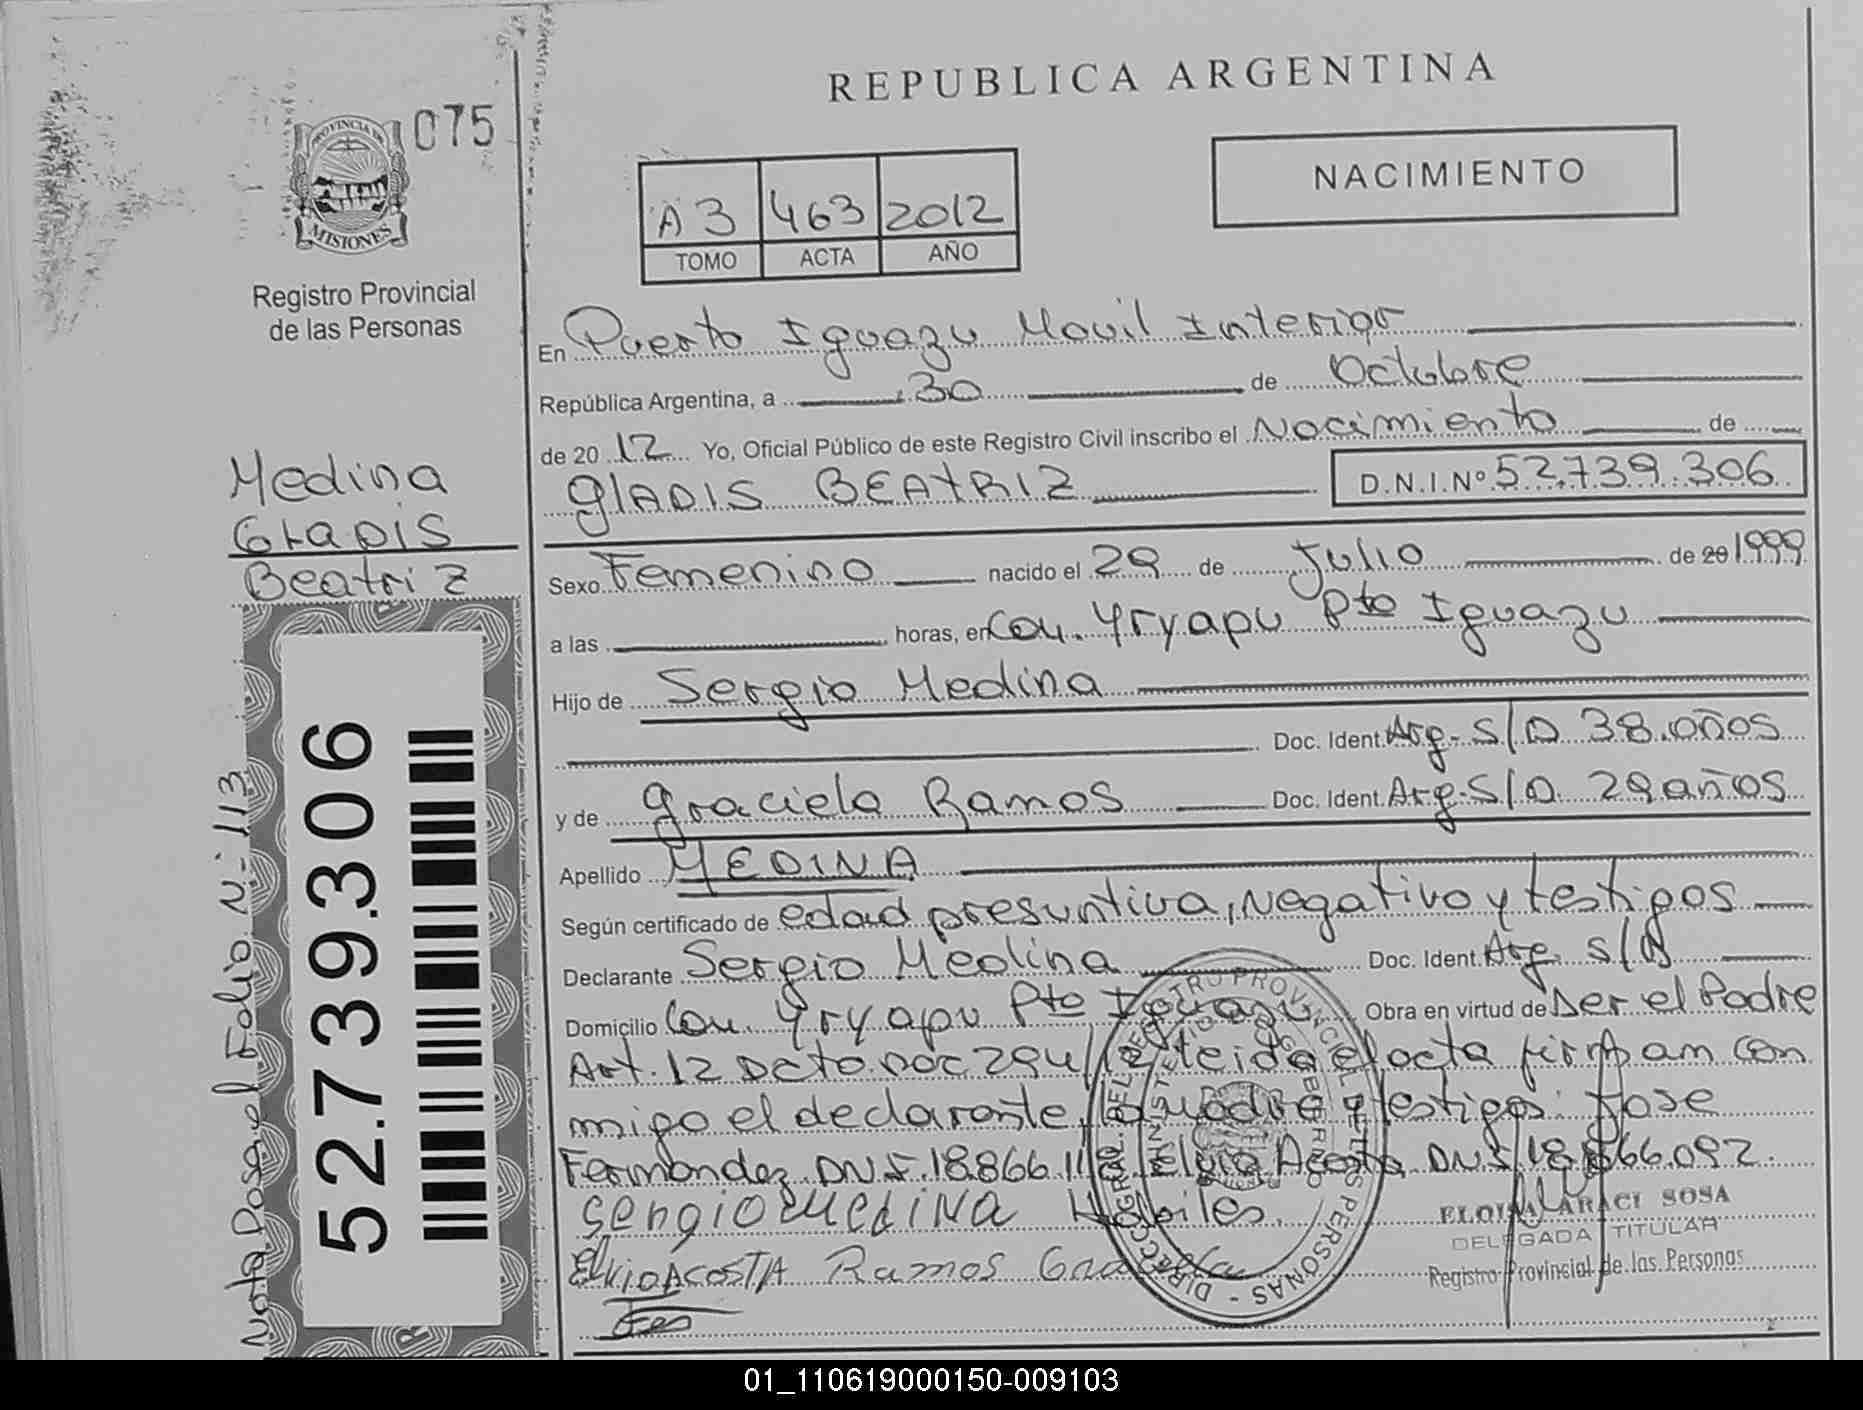 REPUBLICA ARGENTINA
075
PROVINCIA DE
MISIONES
Registro Provincial
de las Personas
NACIMIENTO
A3 463 2012
TOMO ACTA AÑO
En Puerto Iguazu Movil Interior
República Argentina, a 30 de Octubre
de 20 12 Yo, Oficial Público de este Registro Civil inscribo el Nacimiento de
GlADIS BEATRIZ D.N.I.Nº 52.739.306
Medina
GLADIS
Beatriz
Sexo Femenino nacido el 29 de Julio de 20 1999
a las horas, en Com. Yryapu Pto Iguazu
Hijo de Sergio Medina
Doc. Ident. Arg. S/D 38 años
y de Graciela Ramos Doc. Ident. Arg. S/D 29 años
Apellido MEDINA
Según certificado de edad presuntiva, Negativo y testigos
Declarante Sergio Medina Doc. Ident. Arg. S/D
Domicilio Com. Yryapu Pto Iguazu Obra en virtud de Ser el Padre
Art. 12 Dcto Leida el acta firman con
migo el declarante, la madre y testigos: Jose
Fermondez DNI 18.866.11 Elvio Acosta DNI 18.866.092
Sergio Medina Habiles.
ELVIO ACOSTA Ramos
ELOISA ARACI SOSA
DELEGADA TITULAR
Registro Provincial de las Personas
52.739.306
Nota Pasa el Folio N- 113
01_110619000150-009103